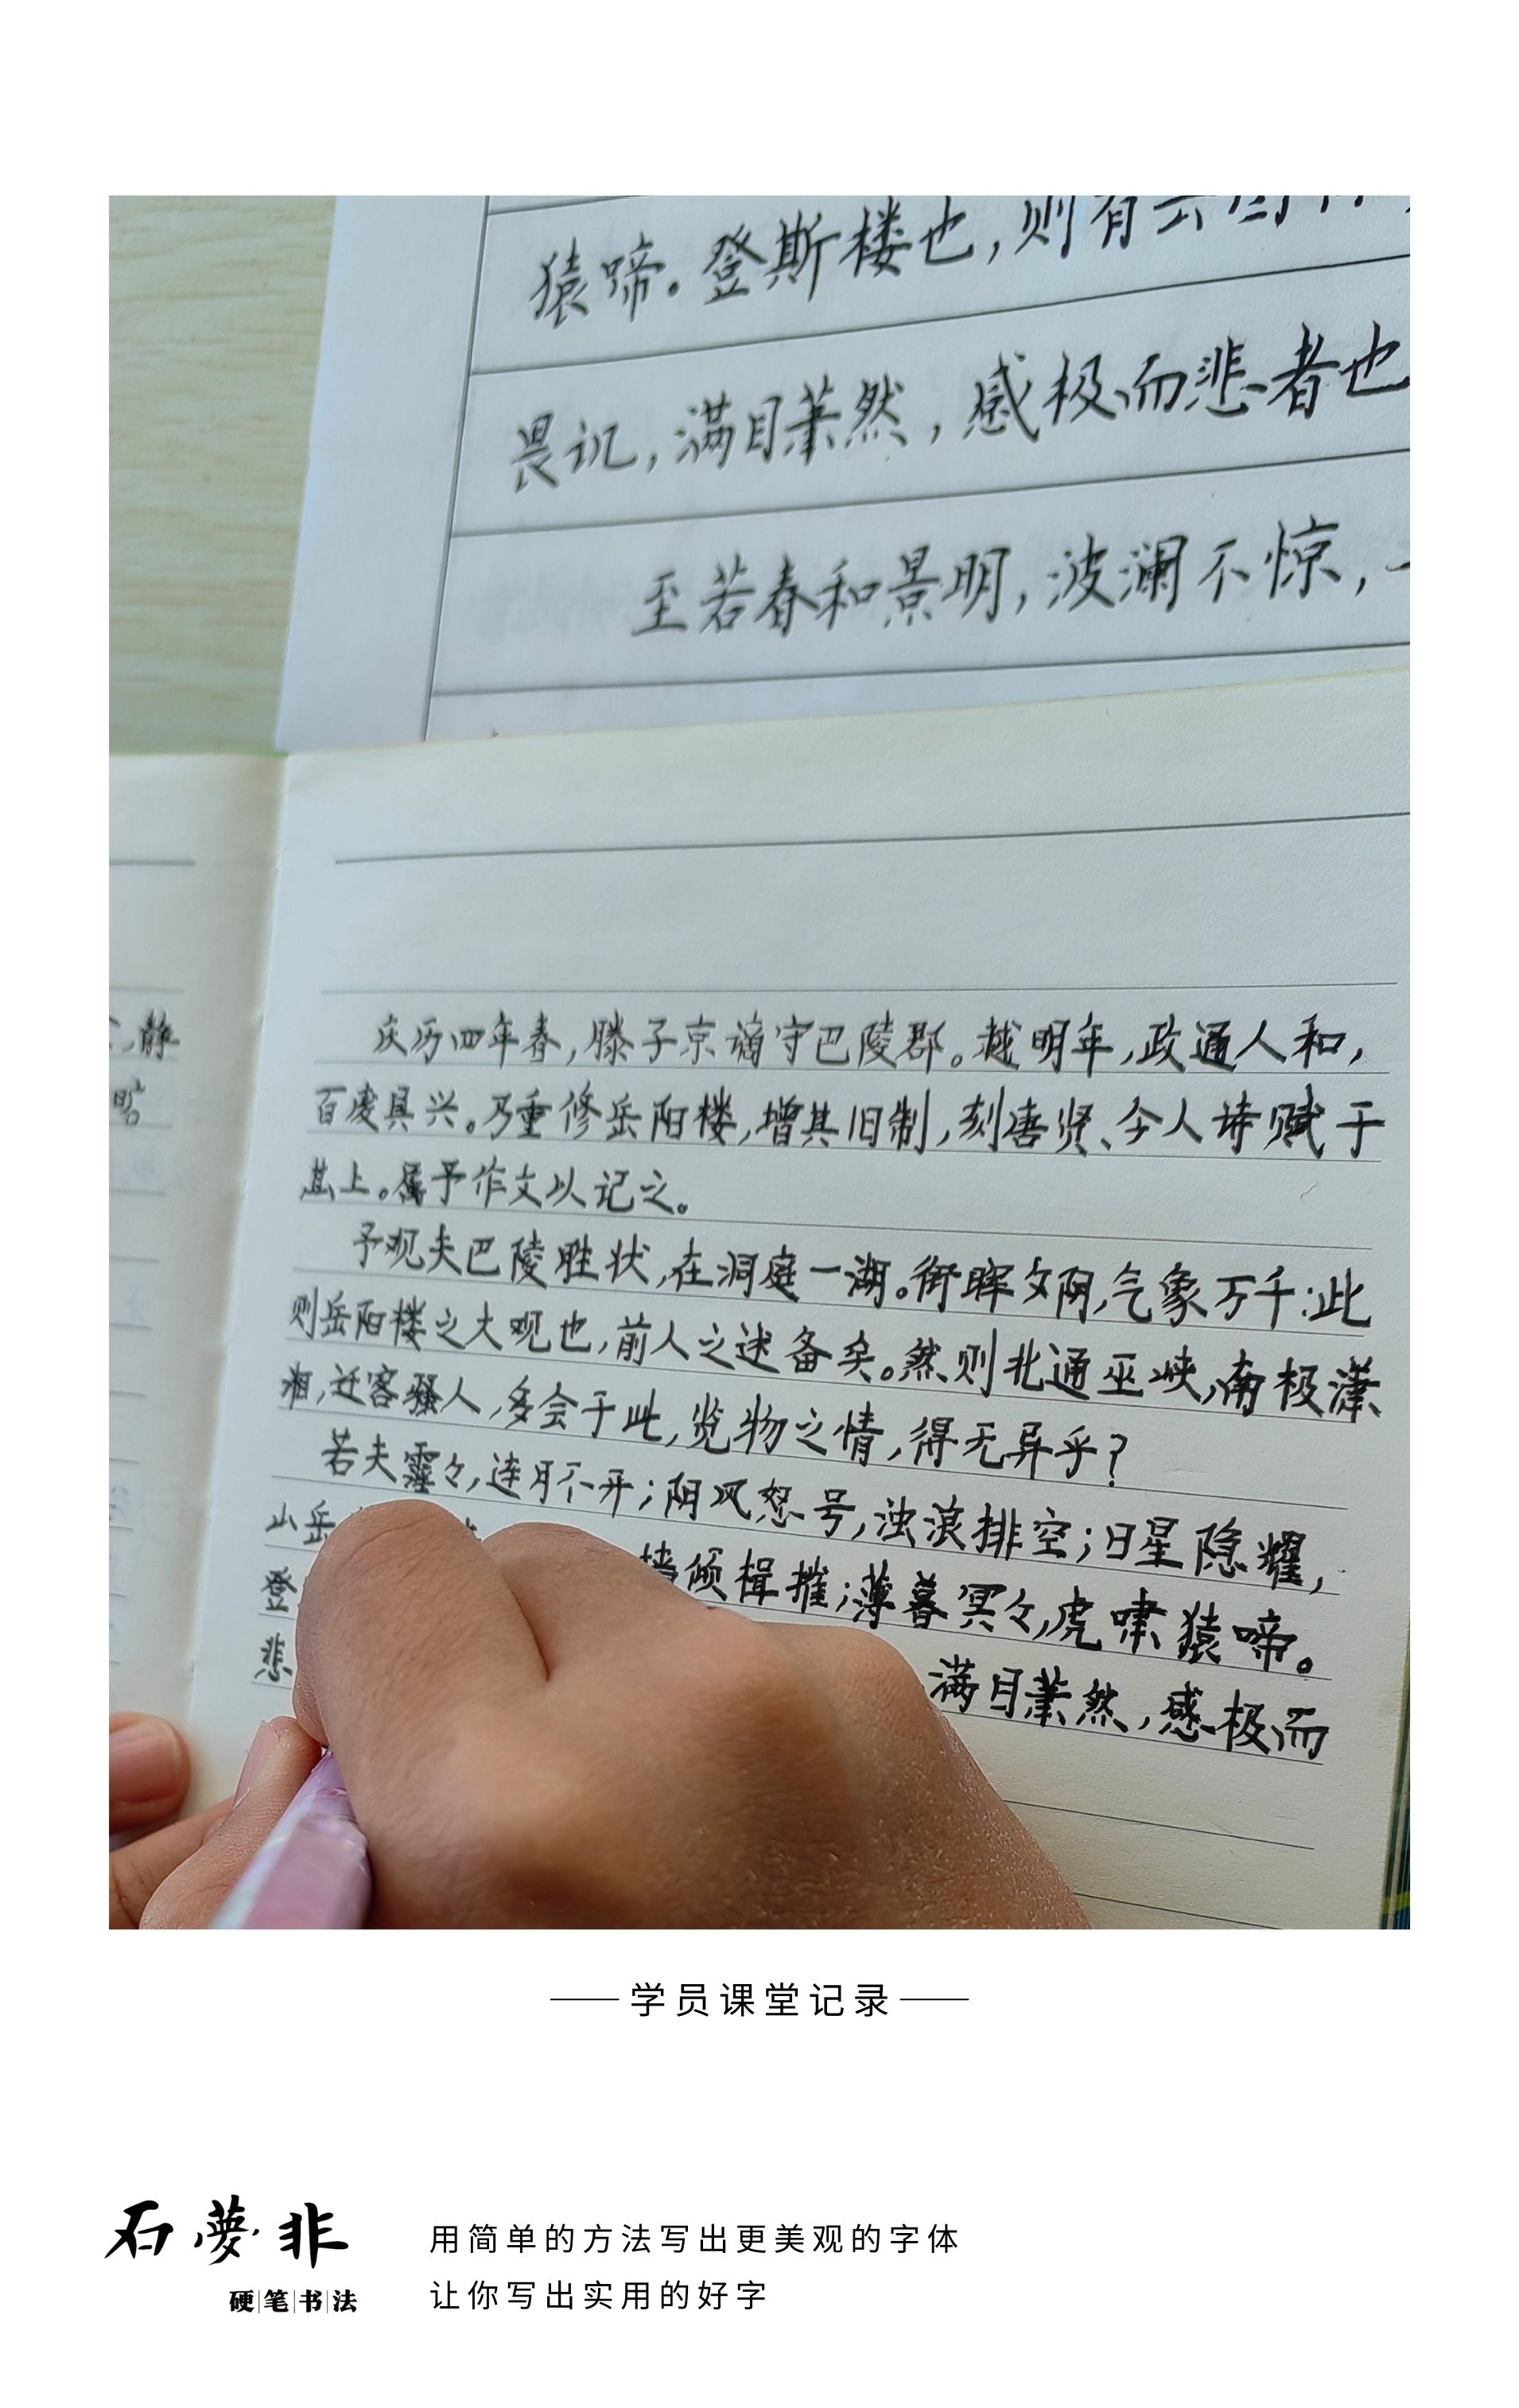 猿啼。登斯楼也,则有去国
畏讥,满目萧然,感极而悲者也
至若春和景明,波澜不惊,一
静
庆历四年春,滕子京谪守巴陵郡。越明年,政通人和,
百废具兴。乃重修岳阳楼,增其旧制,刻唐贤、今人诗赋于
其上。属予作文以记之。
予观夫巴陵胜状,在洞庭一湖。衔晖夕阴,气象万千;此
则岳阳楼之大观也,前人之述备矣。然则北通巫峡,南极潇
湘,迁客骚人,多会于此,览物之情,得无异乎?
若夫霪々,连月不开;阴风怒号,浊浪排空;日星隐耀,
山岳
樯倾楫摧;薄暮冥々,虎啸猿啼。
登
满目萧然,感极而
悲
学员课堂记录
石夢非
硬笔书法
用简单的方法写出更美观的字体
让你写出实用的好字